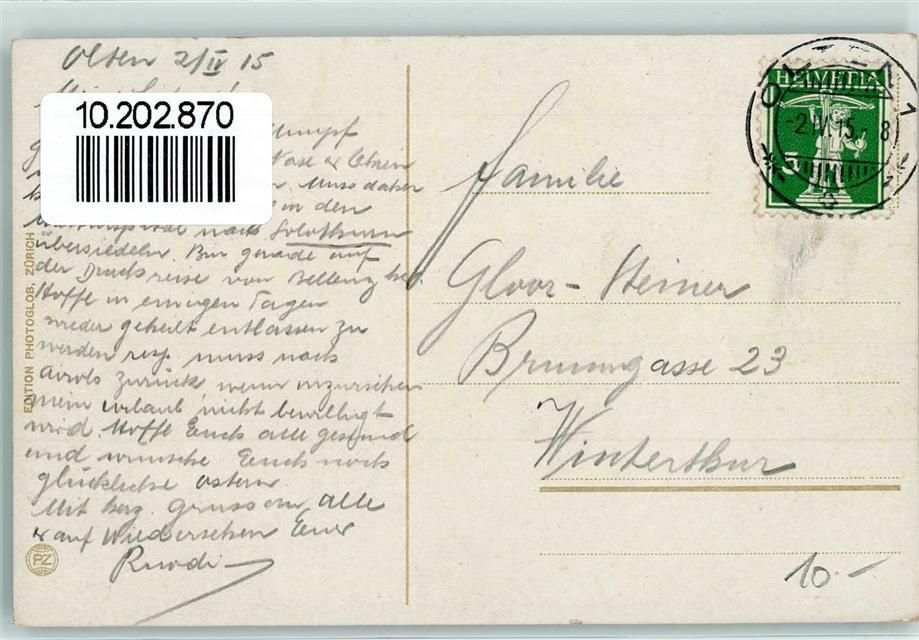 Olten 2/IV 15
10.202.870
Nase & Ohren
Muss daher
in den
nach Solothurn
übersiedeln. Bin gerade auf
der Durchreise von Bellenz
Hoffe in einigen Tagen
wieder geheilt entlassen zu
werden resp. muss nach
Airolo zurück, wenn inzwischen
mein Urlaub nicht bewilligt
wird. Hoffe Euch alle gesund
und wünsche Euch noch
glückliche Ostern
Mit herz. Gruss an alle
& auf Wiedersehen Euer
Ruodi
EDITION PHOTOGLOB, ZÜRICH
PZ
Familie
Gloor-Steiner
Brunngasse 23
Winterthur
HELVETIA
5
OLTEN 1
-2.IV.15. 8
10.-